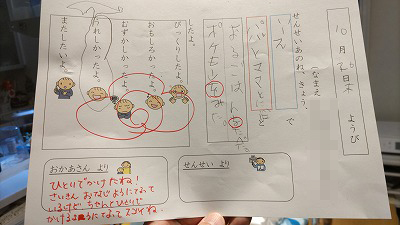 10月26日木ようび
(なまえ
せんせいあのね、きょう、
いえ で
パパとママと を
よるごはんをたべた。
ポケモンをみた。
したよ。
びっくりしたよ。
おもしろかったよ。
むずかしかったよ。
うれしかったよ。
またしたいよ。
せんせい より
おかあさん より
ひとりでかけたね！
さいきん おなじようになって
いるけど、ちゃんとひとりで
かけるようになってスゴイね。